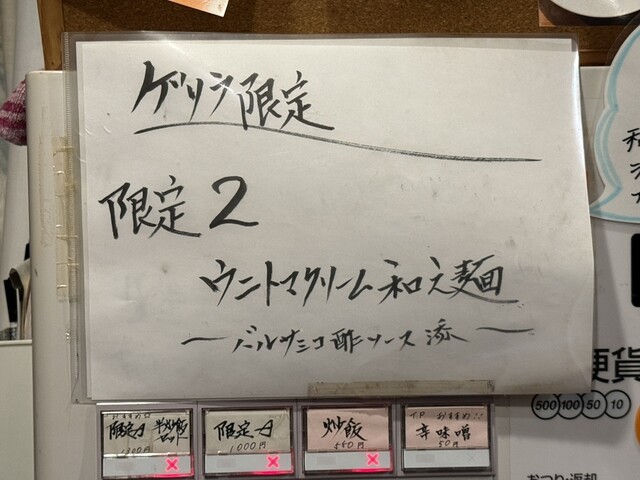 ゲリラ限定
限定2
ウニトマクリーム和え麺
〜バルサミコ酢ソース添〜
おすすめ!!
限定A 半炒飯
1300円
限定A
1000円
炒飯
550円
T.P おすすめ!!
辛味噌
50円
硬貨
500 100 50 10
おつり・返却